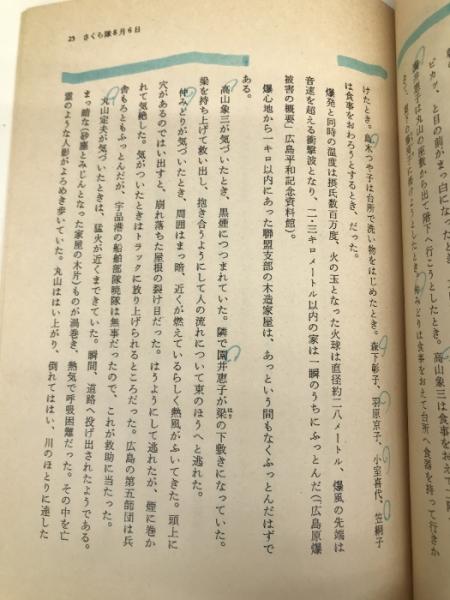 25 さくら隊8月6日
ピカッ、と目の前がまっ白になったとき、
園井恵子は丸山の部屋から出て階下へ行こうとしたとき。高山象三は食事をおえて二階
みどりは食事をおえて台所へ食器を持って行きか
けたとき。島木つや子は台所で洗い物をはじめたとき。森下彰子、羽原京子、小室喜代、笠絅子
は食事をおわろうとするとき、だった。
爆発と同時の温度は摂氏数百万度、火の玉となった火球は直径約二八メートル、爆風の先端は
音速を超える衝撃波となり、二・三キロメートル以内の家は一瞬のうちにふっとんだ(「広島原爆
被害の概要」広島平和記念資料館)。
爆心地から一キロ以内にあった聯盟支部の木造家屋は、あっという間もなくふっとんだはずで
ある。
高山象三が気づいたとき、黒煙につつまれていた。隣で園井恵子が梁の下敷きになっていた。
はり
梁を持ち上げて救い出し、抱き合うようにして人の流れについて東のほうへと逃れた。
仲みどりが気づいたとき、周囲はまっ暗、近くが燃えているらしく熱風がふいてきた。頭上に
穴があるのではい出すと、崩れ落ちた屋根の裂け目だった。はうようにして逃れたが、煙に巻か
れて気絶した。気がついたときはトラックに放り上げられるところだった。広島の第五師団は兵
舎もろともふっとんだが、宇品港の船舶部隊暁隊は無事だったので、これが救助に当たった。
丸山定夫が気づいたときは、猛火が近くまできていた。瞬間、道路へ投げ出されたようである。
まっ暗な(砂塵とみじんとなった家屋の木片)ものが渦巻き、熱気で呼吸困難だった。その中を亡
霊のような人影がよろめき歩いていた。丸山ははい上がり、倒れてははい、川のほとりに達した